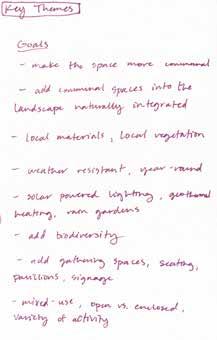 Key Themes
Goals
- make the space more communal
- add communal spaces into the
landscape naturally integrated
- local materials, local vegetation
- weather resistant, year-round
- solar powered lighting, geothermal
heating, rain gardens
- add biodiversity
- add gathering spaces, seating,
pavilions, signage
- mixed-use, open vs. enclosed,
variety of activity